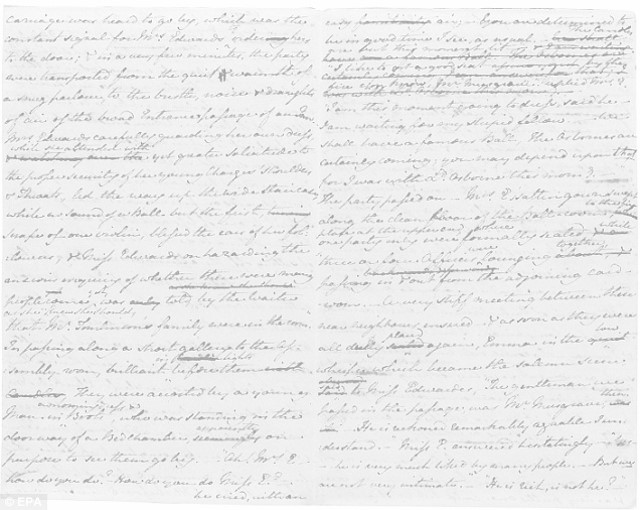 carriage was heard to go by, which was the
constant signal for Mrs Edwards ordering hers
to the door; & in a very few minutes, the party
were transported from the quiet warmth of
a snug parlour to the bustle, noise & draughts
of air of the broad Entrance passage of an Inn.
Mrs Edwards carefully guarding her own dress
while she attended with
yet greater solicitude to
the proper security of her young Charges' Shoulders
& Throats, led the way up the wide Staircase,
while no sound of a Ball but the first
scrape of one violin, blessed the ears of her
followers, & Miss Edwards on hazarding the
anxious enquiry of whether there were many
people come yet was told by the Waiter
as she knew she should,
that Mr Tomlinson's family were in the room.
In passing along a short gallery to the as-
sembly room, brilliant in lights before them
They were accosted by a young
Man in a morning dress & Boots, who was standing in the
doorway of a Bedchamber apparently on
purpose to see them go by.— Ah! Mrs E—
how do you do? How do you do Miss E.?—
he cried, with an
easy air;— You are determined to
be in good time I see, as usual.— The Candles
are but this moment lit.
Mr Musgrave replied Mrs E.
I am this moment going to dress, said he—
I am waiting for my stupid fellow.— We
shall have a famous Ball. The Osbornes are
certainly coming; you may depend upon that
for I was with Ld Osborne this morng—
The party passed on— Mrs E's sattin gown swept
along the clean floor of the Ball-room, to the fire
place at the upper end, where
one party only were formally seated, while
three or four Officers were lounging together,
passing in & out from the adjoining card-
room.— A very stiff meeting between these
near neighbours ensued— & as soon as they were
all duely placed again, Emma in the low
whisper which became the solemn scene
said to Miss Edwardes, "The gentleman we
passed in the passage, was Mr Musgrave, then?
He is reckoned remarkably agreable I un-
derstand.—" Miss E. answered hesitatingly— "Yes—
he is very much liked by many people.— But we
are not very intimate."— "He is rich, is not he?"
© EPA